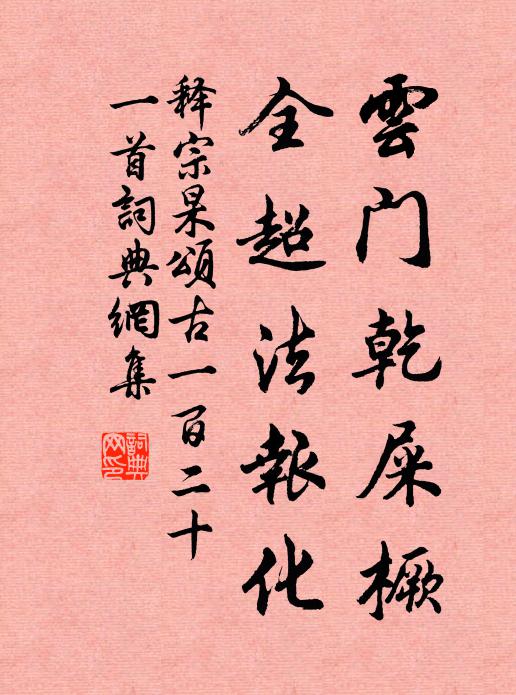 雲门乾屎橛
全超法報化
释宗杲頌古一百二十
一首詞典網集
詞典
网印